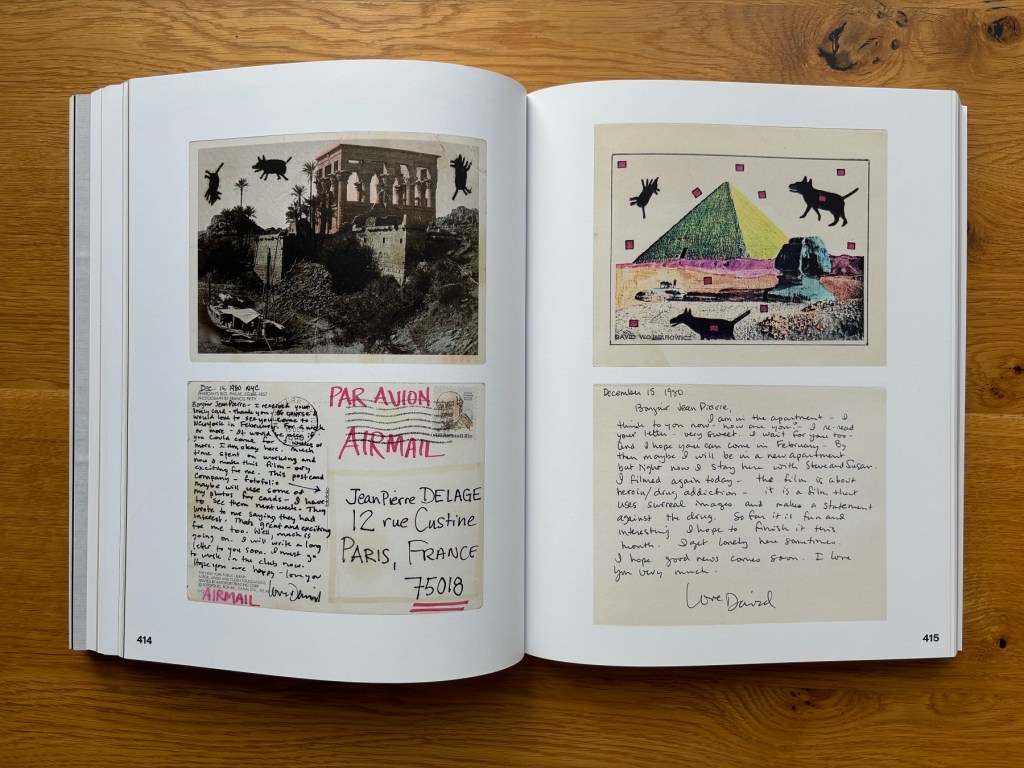 Dec. 15 1980 NYC
PHARAOH'S BED, PHILAE, EGYPT, 1857
PHOTOGRAPH BY FRANCIS FRITH
Bonjour JeanPierre - I received your
lovely card - thank you - Of course I
would love to see you come to
NewYork in February. For a week
or more - It would
you could come
more. I am okay here. Much
time spent on working and
now I make this film - very
exciting for me. This postcard
company - fotofolio
maybe will use some of
my photos for cards - I have
to see them next week - They
wrote to me saying they had
interest. Thats great and exciting
for me too. Well, much is
going on. I will write a long
letter to you soon. I must go
to work in the club now.
Hope you are happy - love you
love David
THE NEW YORK PUBLIC LIBRARY
ASTOR, LENOX AND TILDEN FOUNDATIONS
AIRMAIL
PAR AVION
AIRMAIL
JeanPierre DELAGE
12 rue Custine
PARIS, FRANCE
75018
414
DAVID WOJNAROWICZ
December 15 1980
Bonjour Jean Pierre,
I am in the apartment - I
think to you now - how are you? - I re-read
your letter - very sweet. I wait for you too -
and I hope you can come in February - By
then maybe I will be in a new apartment
but Right now I stay here with Steve and Susan.
I filmed again today - the film is about
heroin/drug addiction - it is a film that
uses surreal images and makes a statement
against the drug. So far it is fun and
interesting I hope to finish it this
month. I get lonely here sometimes.
I hope good news comes soon. I love
you very much.
Love David
415